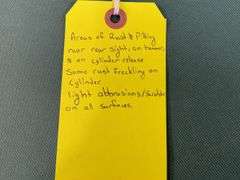 Areas of Rust & Pitting
near rear sight, on hammer,
& on cylinder release
Some rust freckling on
Cylinder
light abbrasions/scratches
on all surfaces